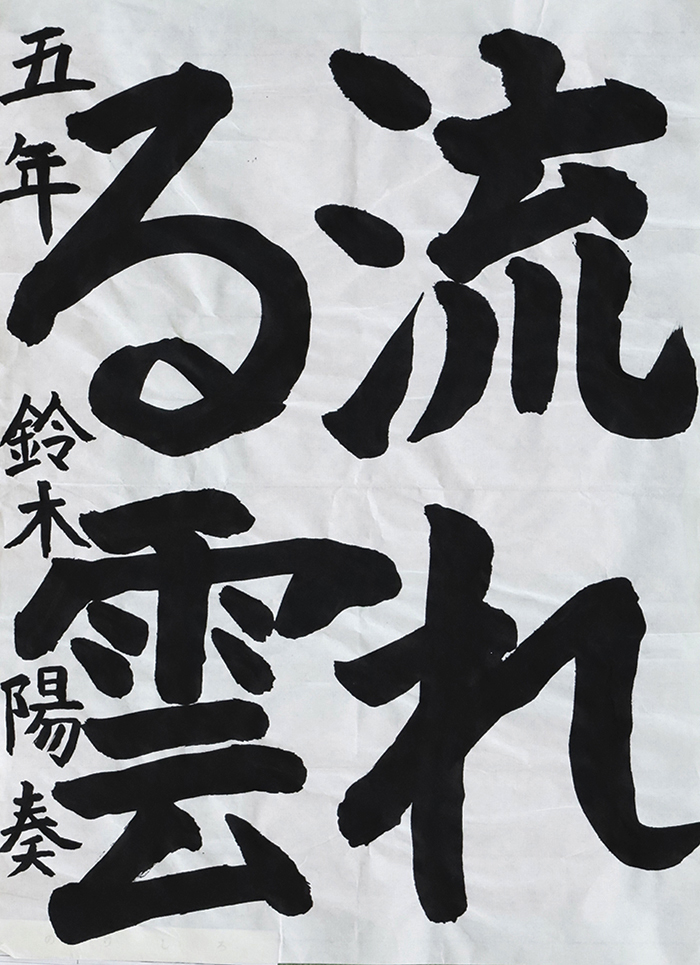 流れ
る雲
五年 鈴木陽奏